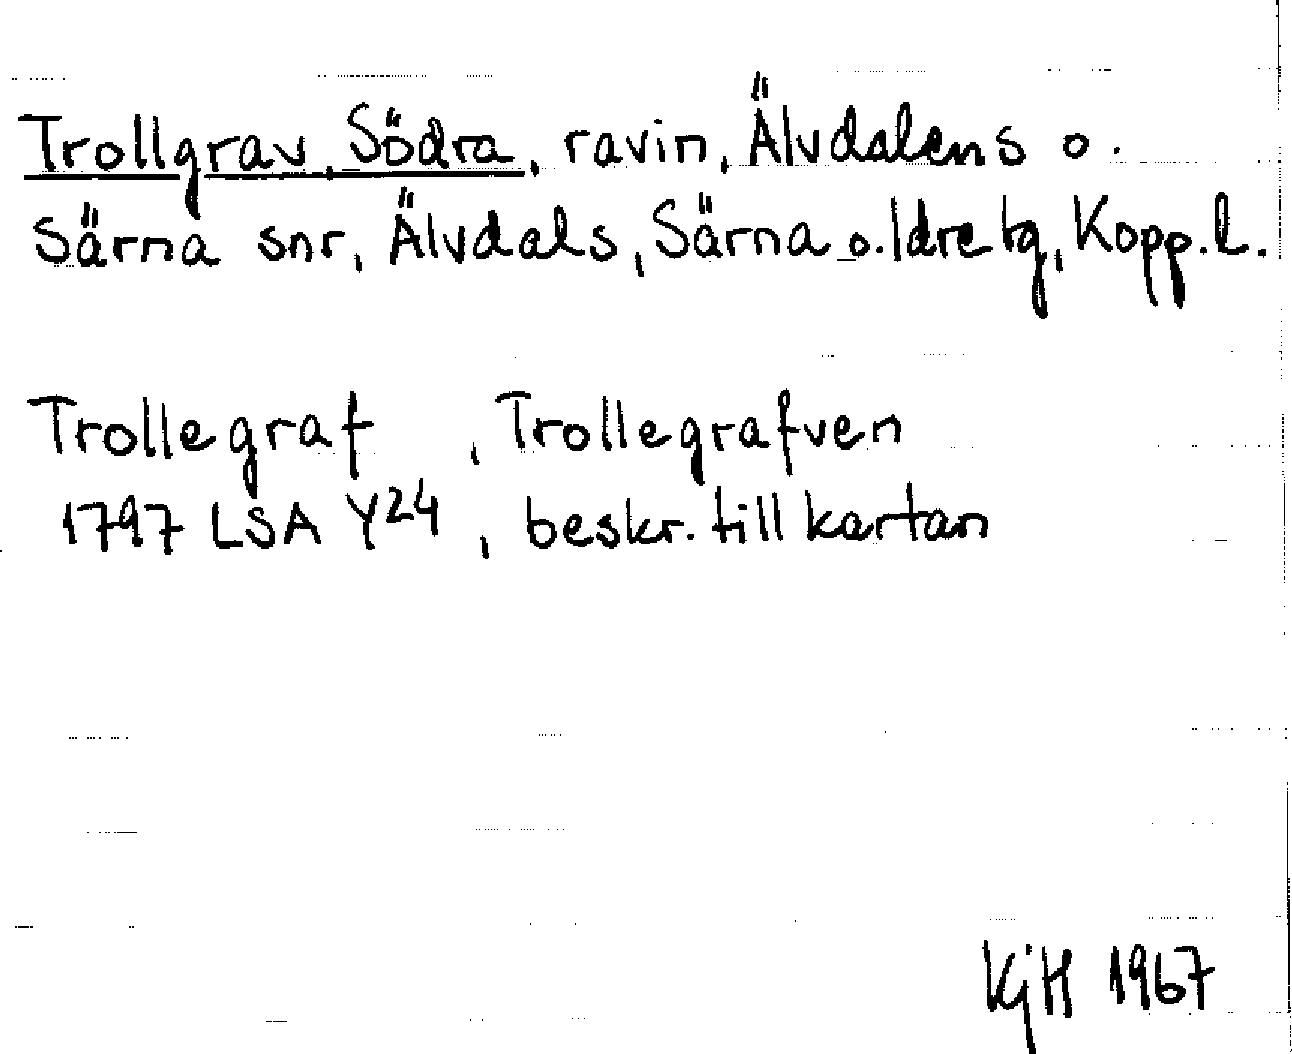 Trollgrav, Södra, ravin, Älvdalens o.
Särna snr, Älvdals, Särna o. Idre tg, Kopp. l.
Trollegraf , Trollegrafven
1797 LSA Y24 , beskr. till kartan
KjH 1967